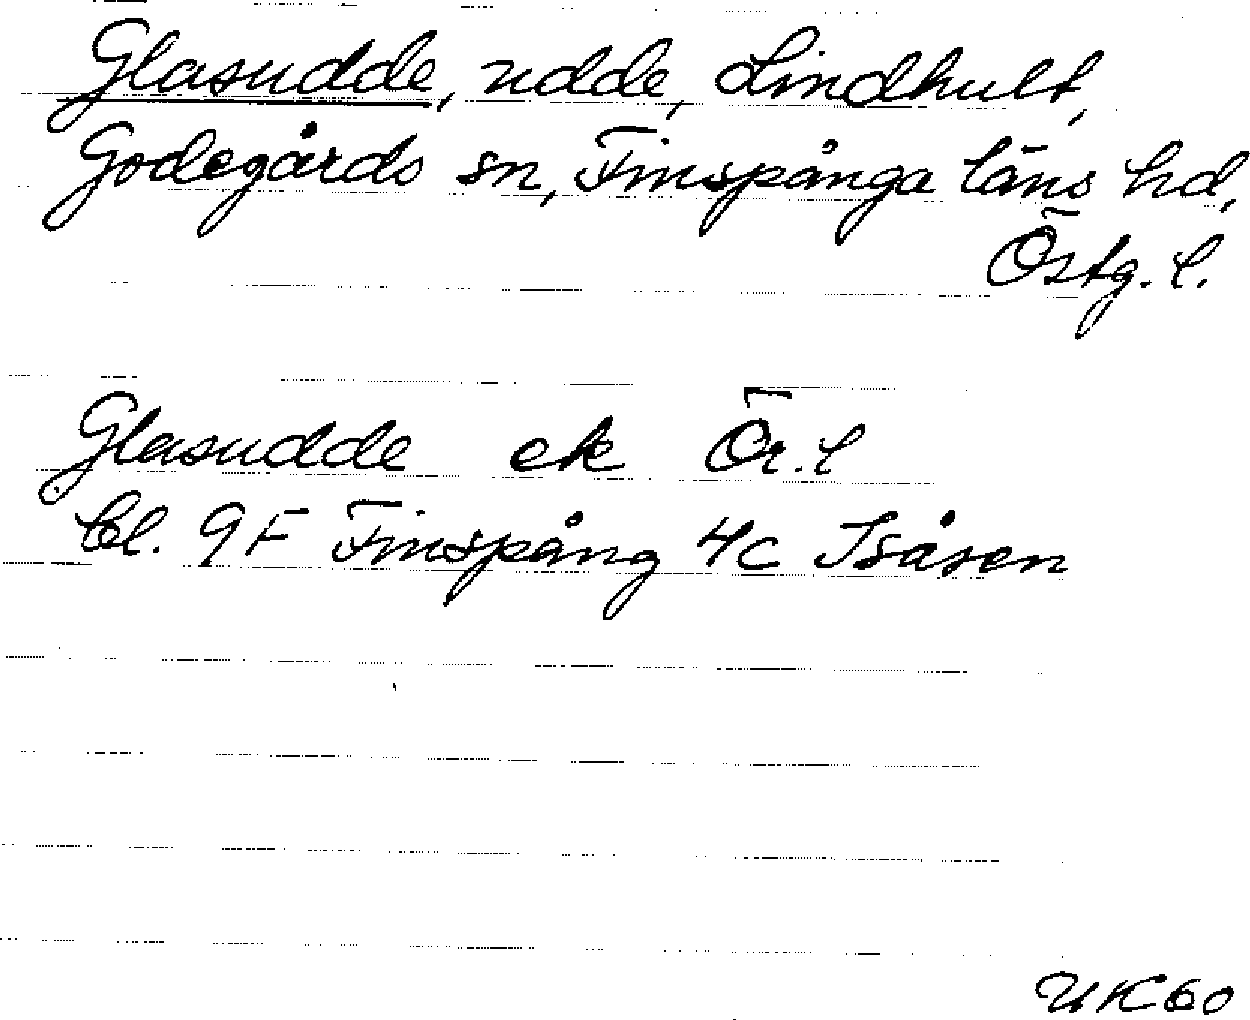 Glasudde, udde, Lindhult,
Godegårds sn, Finspånga läns hd,
Östg. l.
Glasudde ek Ör. l
Bl. 9F Finspång 4c Isåsen
UK60